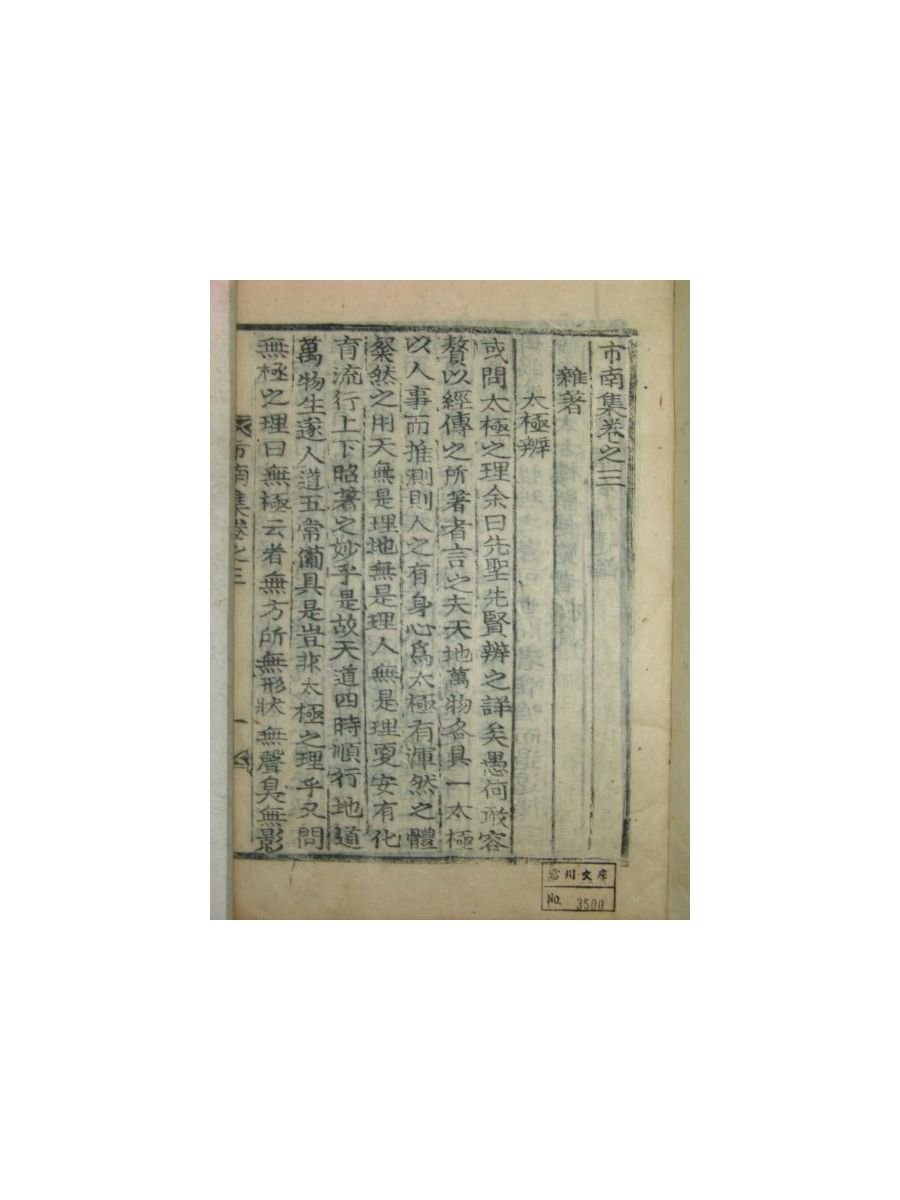 市南集卷之三
雜著
太極辨
或問太極之理余曰先聖先賢辨之詳矣愚何敢容
贅以經傳之所著者言之夫天地萬物各具一太極
以人事而推測則人之有身心爲太極有渾然之體
粲然之用天無是理地無是理人無是理更安有化
育流行上下昭著之妙乎是故天道四時順行地道
萬物生遂人道五常備具是豈非太極之理乎又問
無極之理曰無極云者無方所無形狀無聲臭無影
市南集卷之三
一
川文庫
No. 3500